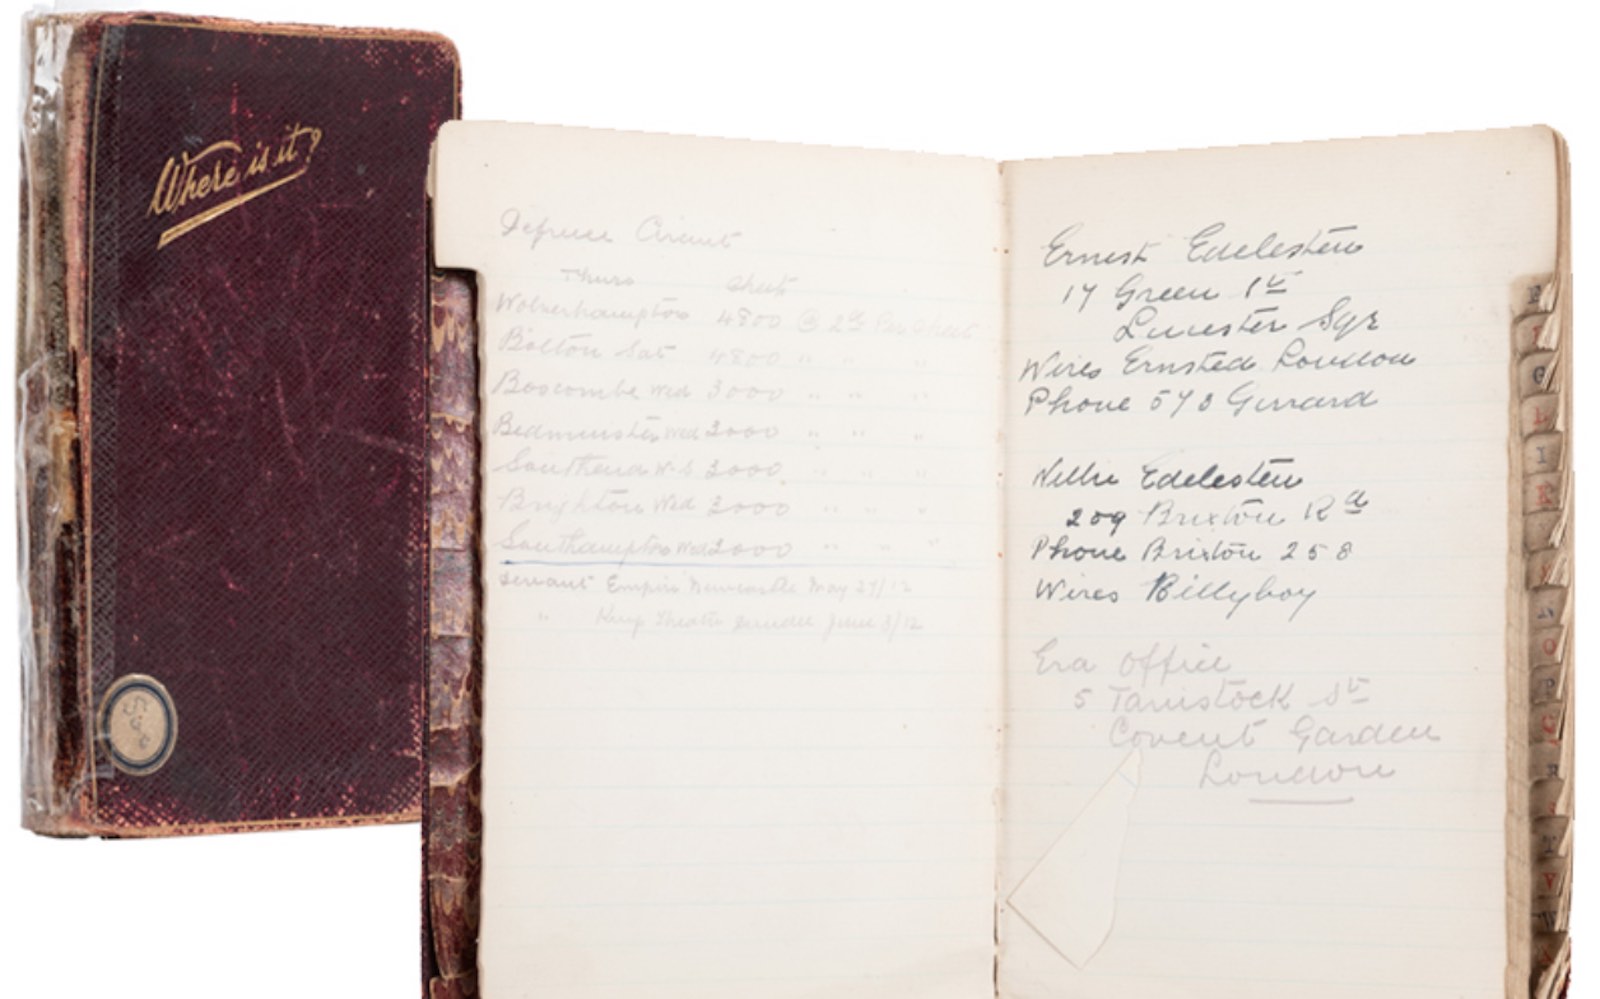 Where is it?
Defrece Circuit
Thurs Sheets
Wolverhampton 4800 @ 2/6 Per Sheet
Bolton Sat 4800 " " "
Boscombe Wed 3000 " " "
Bedminster Wed 3000 " " "
Southend W-S 3000 " " "
Brighton Wed 3000 " " "
Southampton Wed 3000 " " "
Servant Empire Newcastle May 27/12
" Kings Theatre Dundee June 3/12
Ernest Edelesten
17 Green St
Leicester Sqr
Wires Ernsted London
Phone 570 Gerrard
Nellie Edelesten
209 Brixton Rd
Phone Brixton 258
Wires Billyboy
Era Office
5 Tavistock St
Covent Garden
London
G
I
K
O
P
R
T
V
W